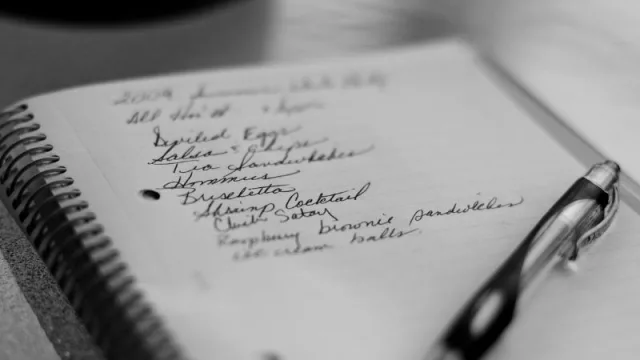 2009 Summer White Party
All
Deviled Eggs
Salsa + Chips
Tea Sandwiches
Hommus
Bruschetta
Shrimp Cocktail
Satay
Raspberry brownie sandwiches
ice cream balls